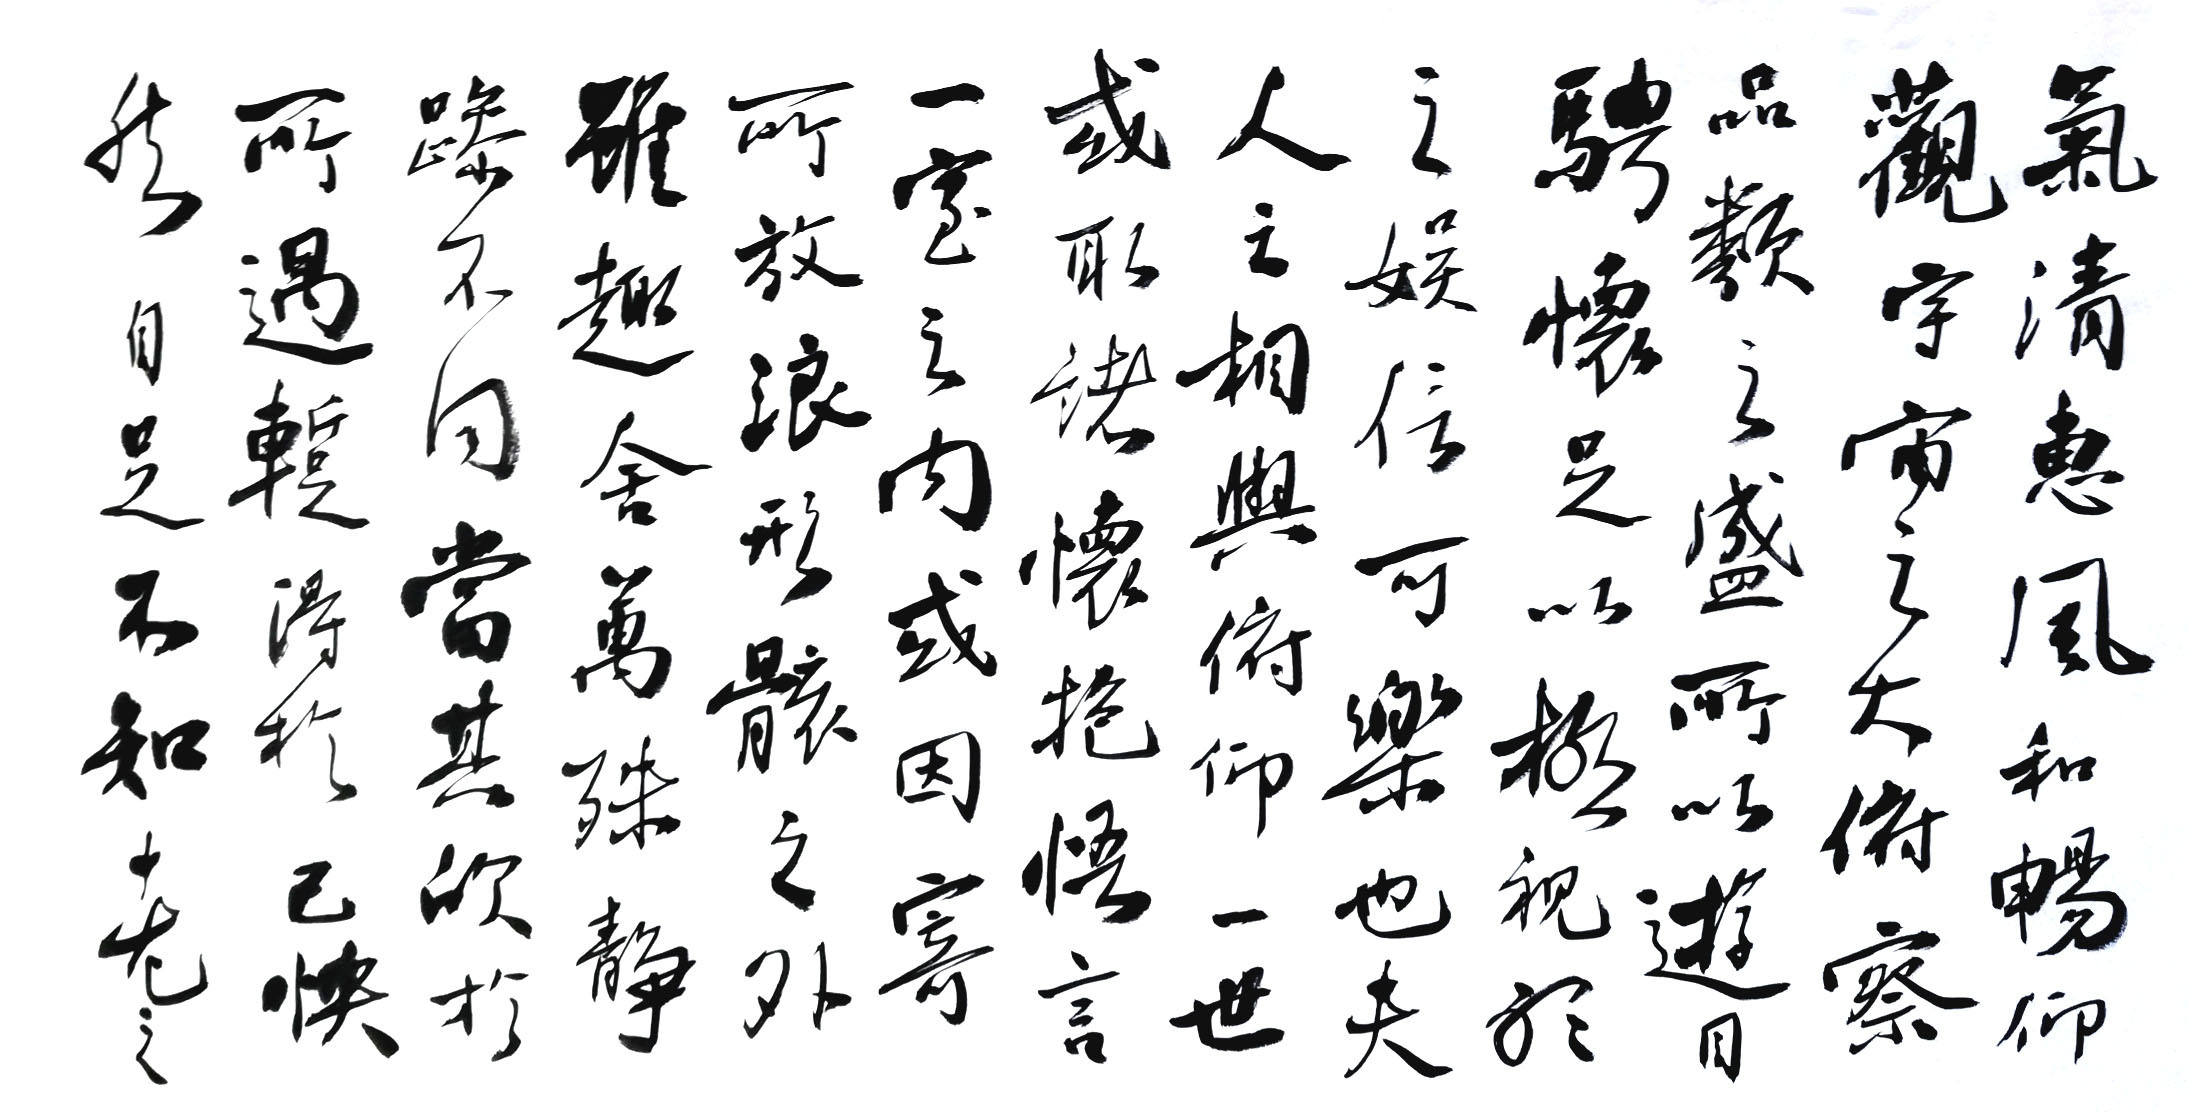 氣清惠風和暢仰
觀宇宙之大俯察
品類之盛所以遊目
騁懷足以極視聽
之娛信可樂也夫
人之相與俯仰一世
或取諸懷抱悟言
一室之內或因寄
所放浪形骸之外
雖趣舍萬殊靜
躁不同當其欣於
所遇蹔得於己快
然自足不知老之